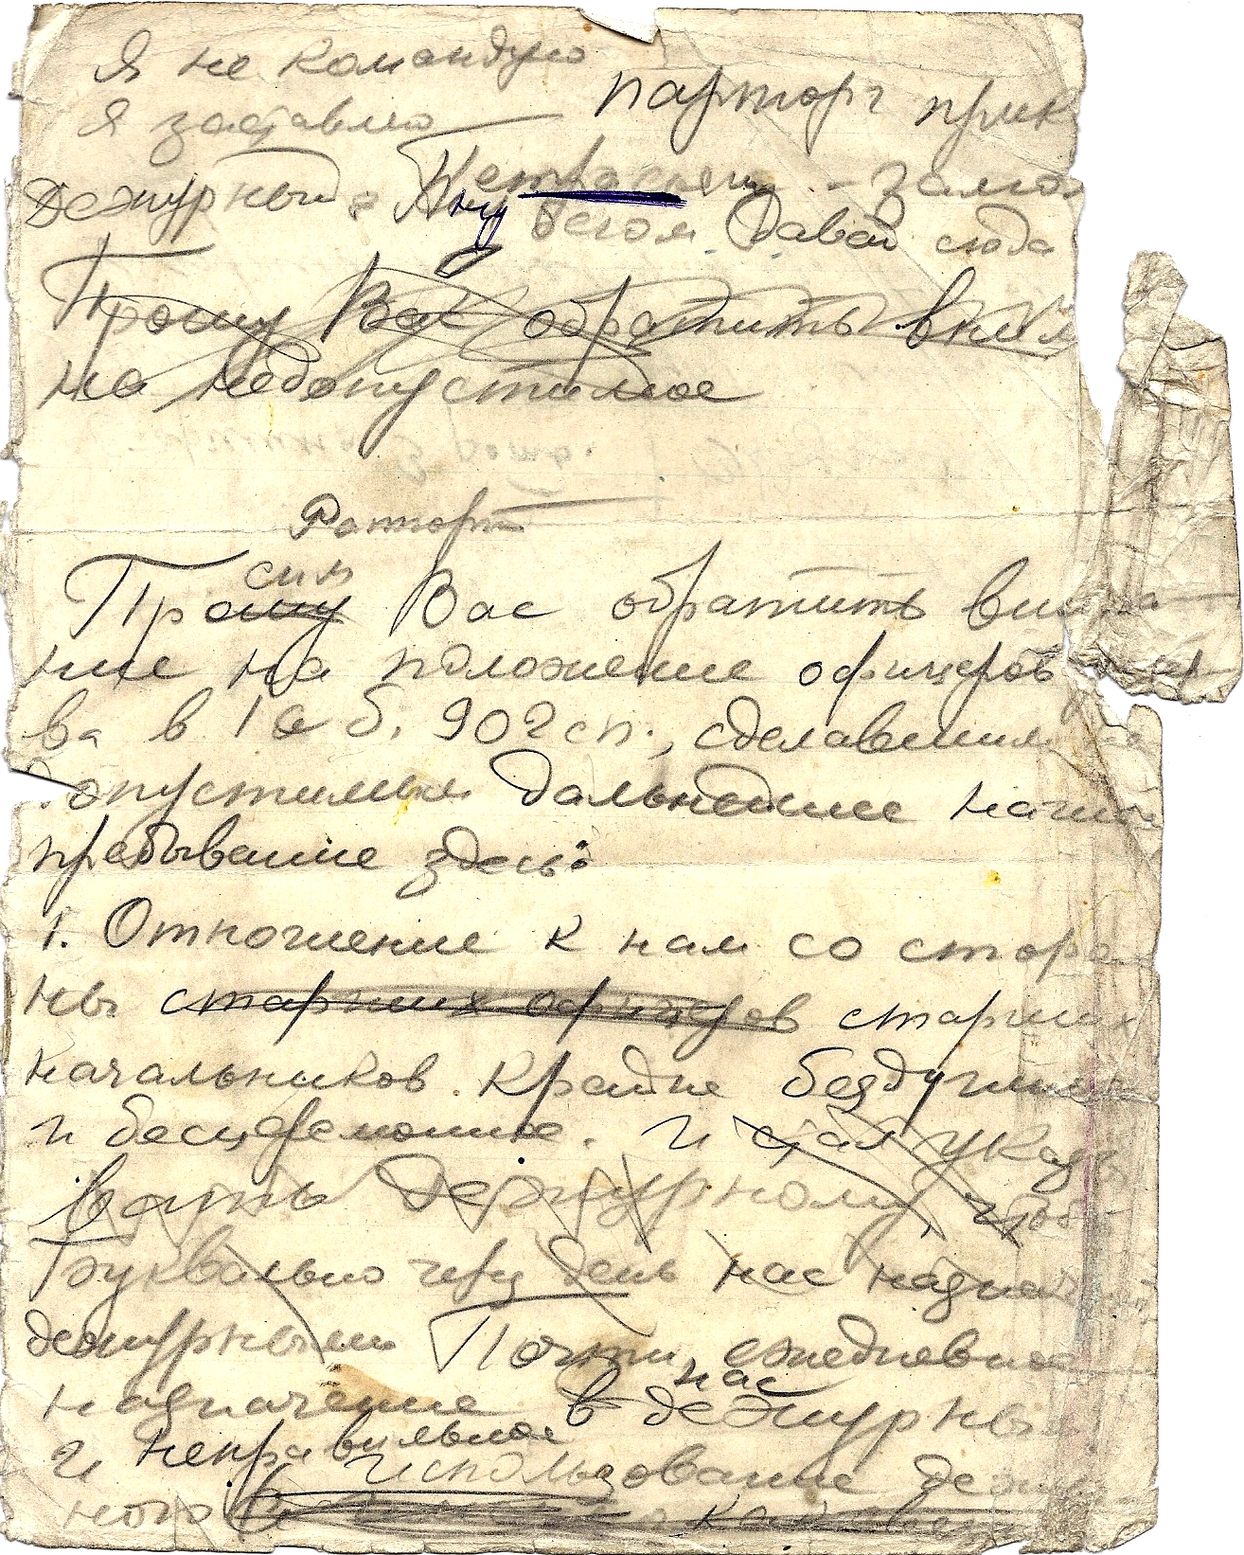 Я не командую
парторг прик
Я заставлю
Дежурный
Ну бегом давай сюда
Прошу Вас обратить вним
на недопустимое
Рапорт
сим
Прошу Вас обратить внима
ние на положение офицеров
ва в 1 с б. 902 сп., сделавшим не
допустимым дальнейшее наше
пребывание здесь:
1. Отношение к нам со сторо
ны старших офицеров старших
начальников крайне бездушное
и бесцеремонное. И стал указы
вать дежурному, чтобы
Буквально через день нас назначают
дежурными Почти ежедневное
нас
назначение в дежурные
и неправильное
использование деж
ного